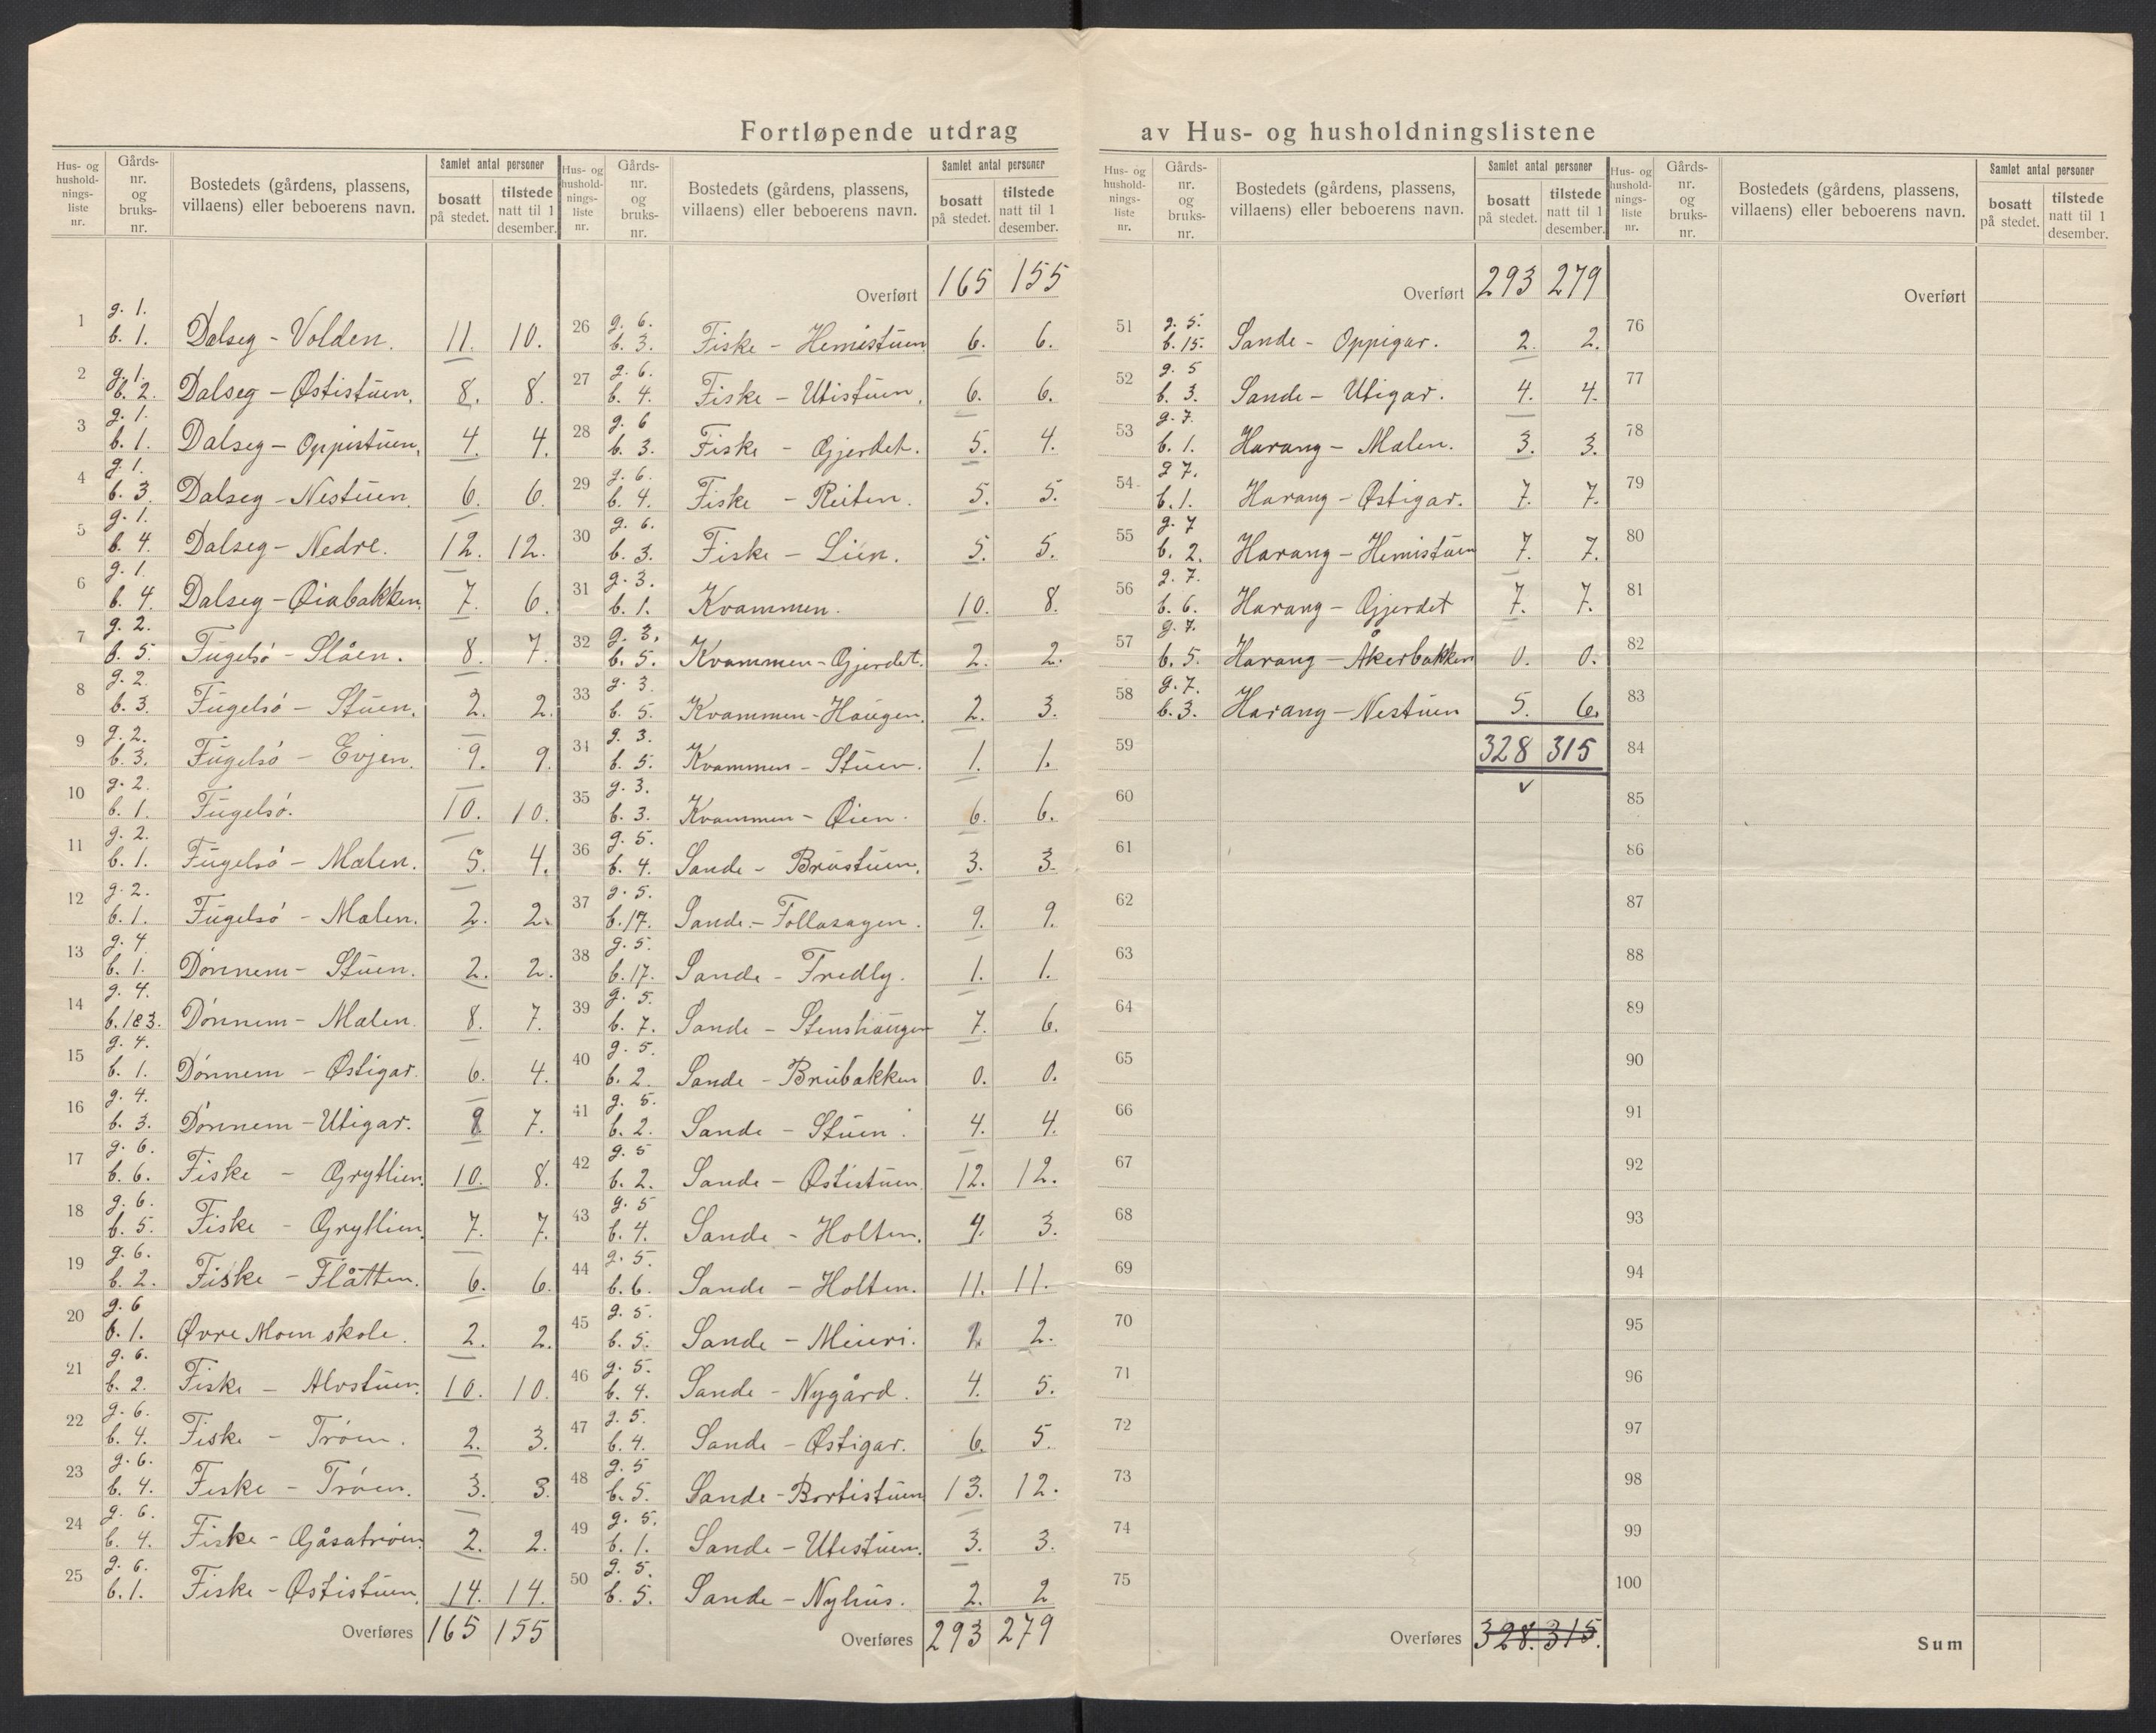 Fortløpende utdrag av Hus- og husholdningslistene
Hus- og husholdningsliste nr. | Gårds-nr. og bruks-nr. | Bostedets (gårdens, plassens, villaens) eller beboerens navn. | Samlet antal personer bosatt på stedet. | tilstede natt til 1 desember.
1 g. 1. b. 1. Dalseg - Volden. 11. 10.
2 g. 1. b. 2. Dalseg - Østistuen. 8. 8.
3 g. 1. b. 1. Dalseg - Oppistuen. 4. 4.
4 g. 1. b. 3. Dalseg - Nestuen. 6. 6.
5 g. 1. b. 4. Dalseg - Nedre. 12. 12.
6 g. 1. b. 4. Dalseg - Øiabakken. 7. 6.
7 g. 2. b. 5. Fugelsø - Slåen. 8. 7.
8 g. 2. b. 3. Fugelsø - Stuen. 2. 2.
9 g. 2. b. 3. Fugelsø - Evjen. 9. 9.
10 g. 2. b. 1. Fugelsø. 10. 10.
11 g. 2. b. 1. Fugelsø - Malen. 5. 4.
12 g. 2. b. 1. Fugelsø - Malen. 2. 2.
13 g. 4. b. 1. Dønnem - Stuen. 2. 2.
14 g. 4. b. 1&3. Dønnem - Malen. 8. 7.
15 g. 4. b. 1. Dønnem - Østigar. 6. 4.
16 g. 4. b. 3. Dønnem - Utigar. 8. 7.
17 g. 6. b. 6. Fiske - Grytlien. 10. 8.
18 g. 6. b. 5. Fiske - Grytlien. 7. 7.
19 g. 6. b. 2. Fiske - Flåtten. 6. 6.
20 g. 6 b. 1. Øvre Moen skole. 2. 2.
21 g. 6. b. 2. Fiske - Alvstuen. 10. 10.
22 g. 6. b. 4. Fiske - Trøen. 2. 3.
23 g. 6. b. 4. Fiske - Trøen. 3. 3.
24 g. 6. b. 4. Fiske - Gåsatrøen 2. 2.
25 g. 6. b. 1. Fiske - Østistuen. 14. 14.
Overføres 165 155
Hus- og husholdningsliste nr. | Gårds-nr. og bruks-nr. | Bostedets (gårdens, plassens, villaens) eller beboerens navn. | Samlet antal personer bosatt på stedet. | tilstede natt til 1 desember.
Overført 165 155
26 g. 6. b. 3. Fiske - Hemistuen 6. 6.
27 g. 6. b. 4. Fiske - Utistuen. 6. 6.
28 g. 6 b. 3. Fiske - Gjerdet. 5. 4.
29 g. 6. b. 4. Fiske - Reiten. 5. 5.
30 g. 6. b. 3. Fiske - Lien. 5. 5.
31 g. 3. b. 1. Kvammen. 10. 8.
32 g. 3. b. 5. Kvammen - Gjerdet. 2. 2.
33 g. 3. b. 5. Kvammen - Haugen. 2. 3.
34 g. 3. b. 5. Kvammen - Stuen. 1. 1.
35 g. 3. b. 3. Kvammen - Øien. 6. 6.
36 g. 5. b. 4. Sande - Brustuen. 3. 3.
37 g. 5. b. 17. Sande - Follasagen. 9. 9.
38 g. 5. b. 17. Sande - Fredly. 1. 1.
39 g. 5. b. 7. Sande - Stenshaugen 7. 6.
40 g. 5. b. 2. Sande - Brubakken 0. 0.
41 g. 5. b. 2. Sande - Stuen. 4. 4.
42 g. 5 b. 2. Sande - Østistuen. 12. 12.
43 g. 5 b. 4. Sande - Holten. 4. 3.
44 g. 5. b. 6. Sande - Holten. 11. 11.
45 g. 5. b. 5. Sande - Meieri. 2.
46 g. 5. b. 4. Sande - Nygård. 4. 5.
47 g. 5. b. 4. Sande - Østigar. 6. 5.
48 g. 5 b. 5. Sande - Bortistuen 13. 12.
49 g. 5. b. 1. Sande - Utistuen. 3. 3.
50 g. 5. b. 5. Sande - Nyhus. 2. 2
Overføres 293 279
Hus- og husholdningsliste nr. | Gårds-nr. og bruks-nr. | Bostedets (gårdens, plassens, villaens) eller beboerens navn. | Samlet antal personer bosatt på stedet. | tilstede natt til 1 desember.
Overført 293 279
51 g. 5. b. 15. Sande - Oppigar. 2. 2.
52 g. 5 b. 3. Sande - Utigar. 4. 4.
53 g. 7. b. 1. Harang - Malen. 3. 3.
54 g 7. b. 1. Harang - Østigar. 7. 7.
55 g. 7 b. 2. Harang - Hemistuen 7. 7.
56 g. 7. b. 6. Harang - Gjerdet 7. 7.
57 g. 7. b. 5. Harang - Åkerbakken 0. 0.
58 g. 7. b. 3. Harang - Nestuen 5. 6.
59 328 315
60
61
62
63
64
65
66
67
68
69
70
71
72
73
74
75
Overføres 328. 315.
Hus- og husholdningsliste nr. | Gårds-nr. og bruks-nr. | Bostedets (gårdens, plassens, villaens) eller beboerens navn. | Samlet antal personer bosatt på stedet. | tilstede natt til 1 desember.
Overført
76
77
78
79
80
81
82
83
84
85
86
87
88
89
90
91
92
93
94
95
96
97
98
99
100
Sum